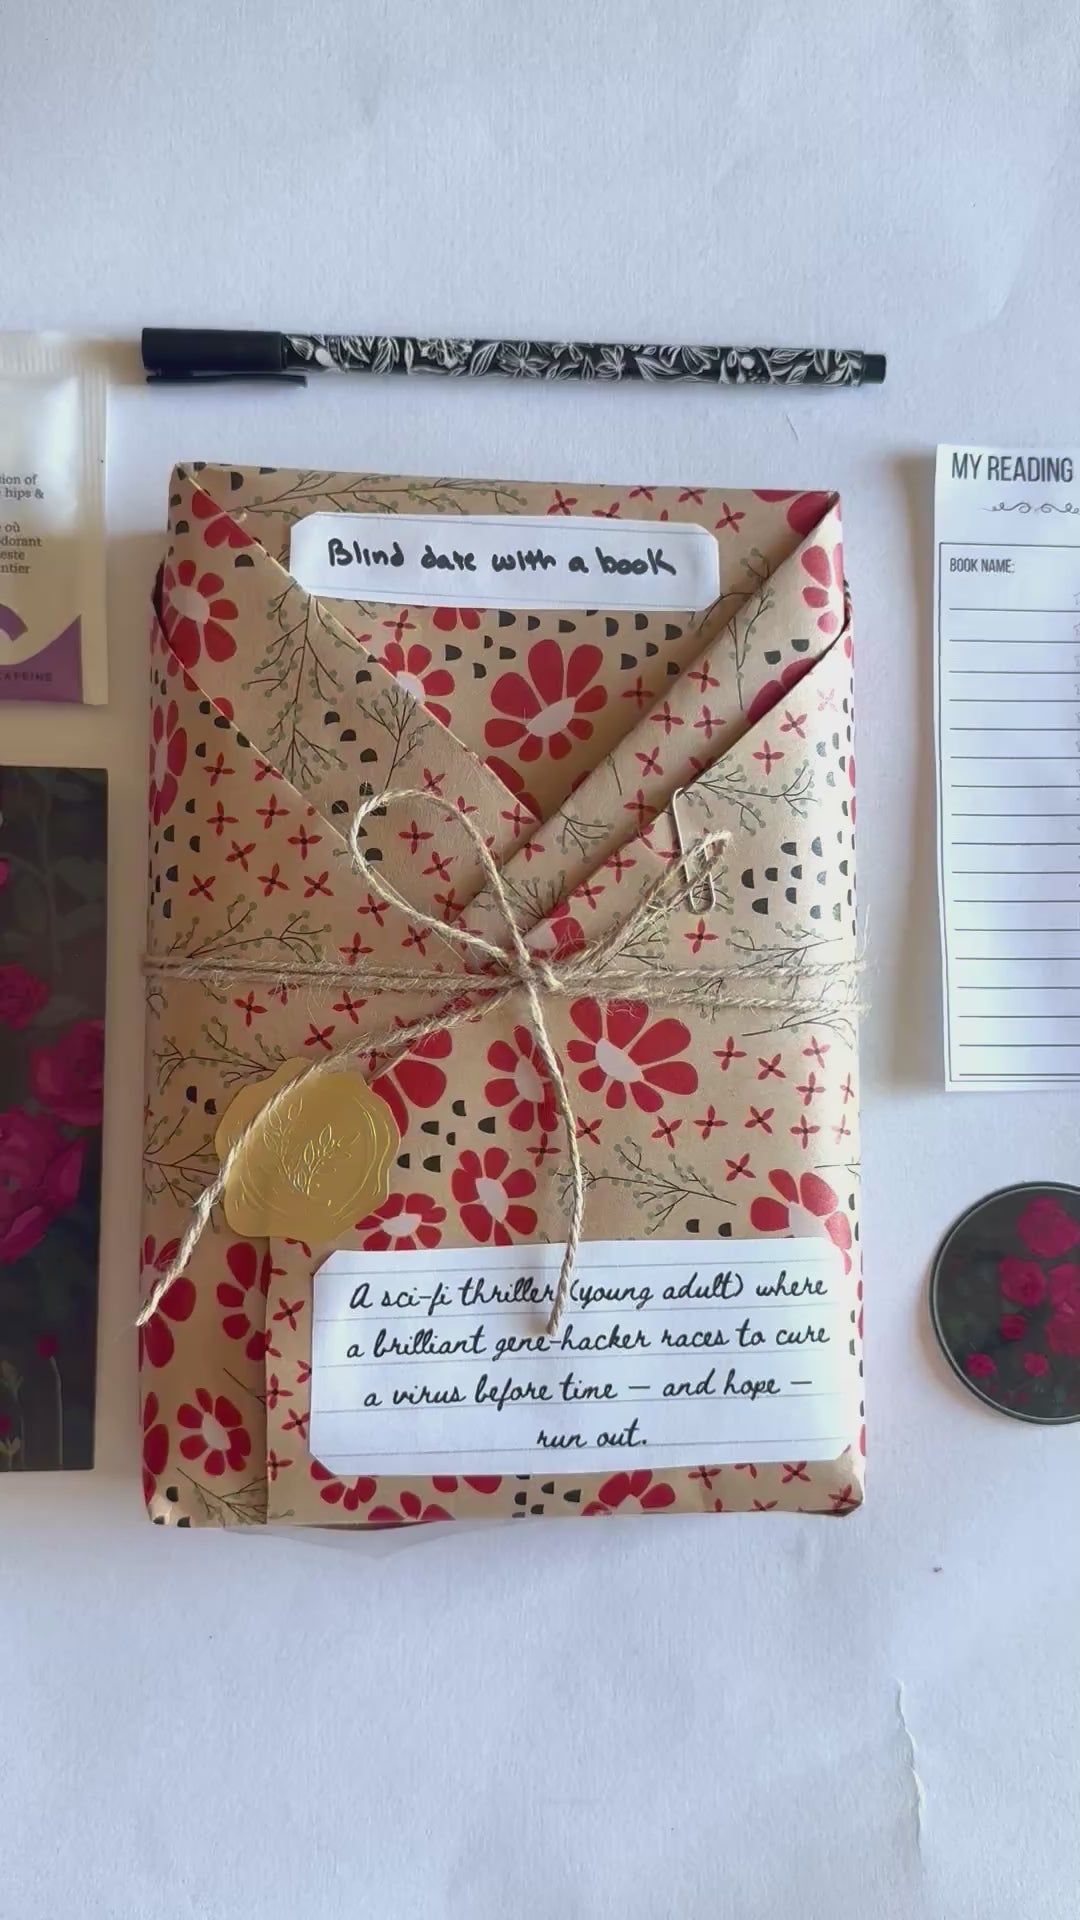 Blind date with a book
ion of
hips &
où
dorant
este
ntier
CAFEINE
MY READING
BOOK NAME:
A sci-fi thriller (young adult) where
a brilliant gene-hacker races to cure
a virus before time — and hope —
run out.